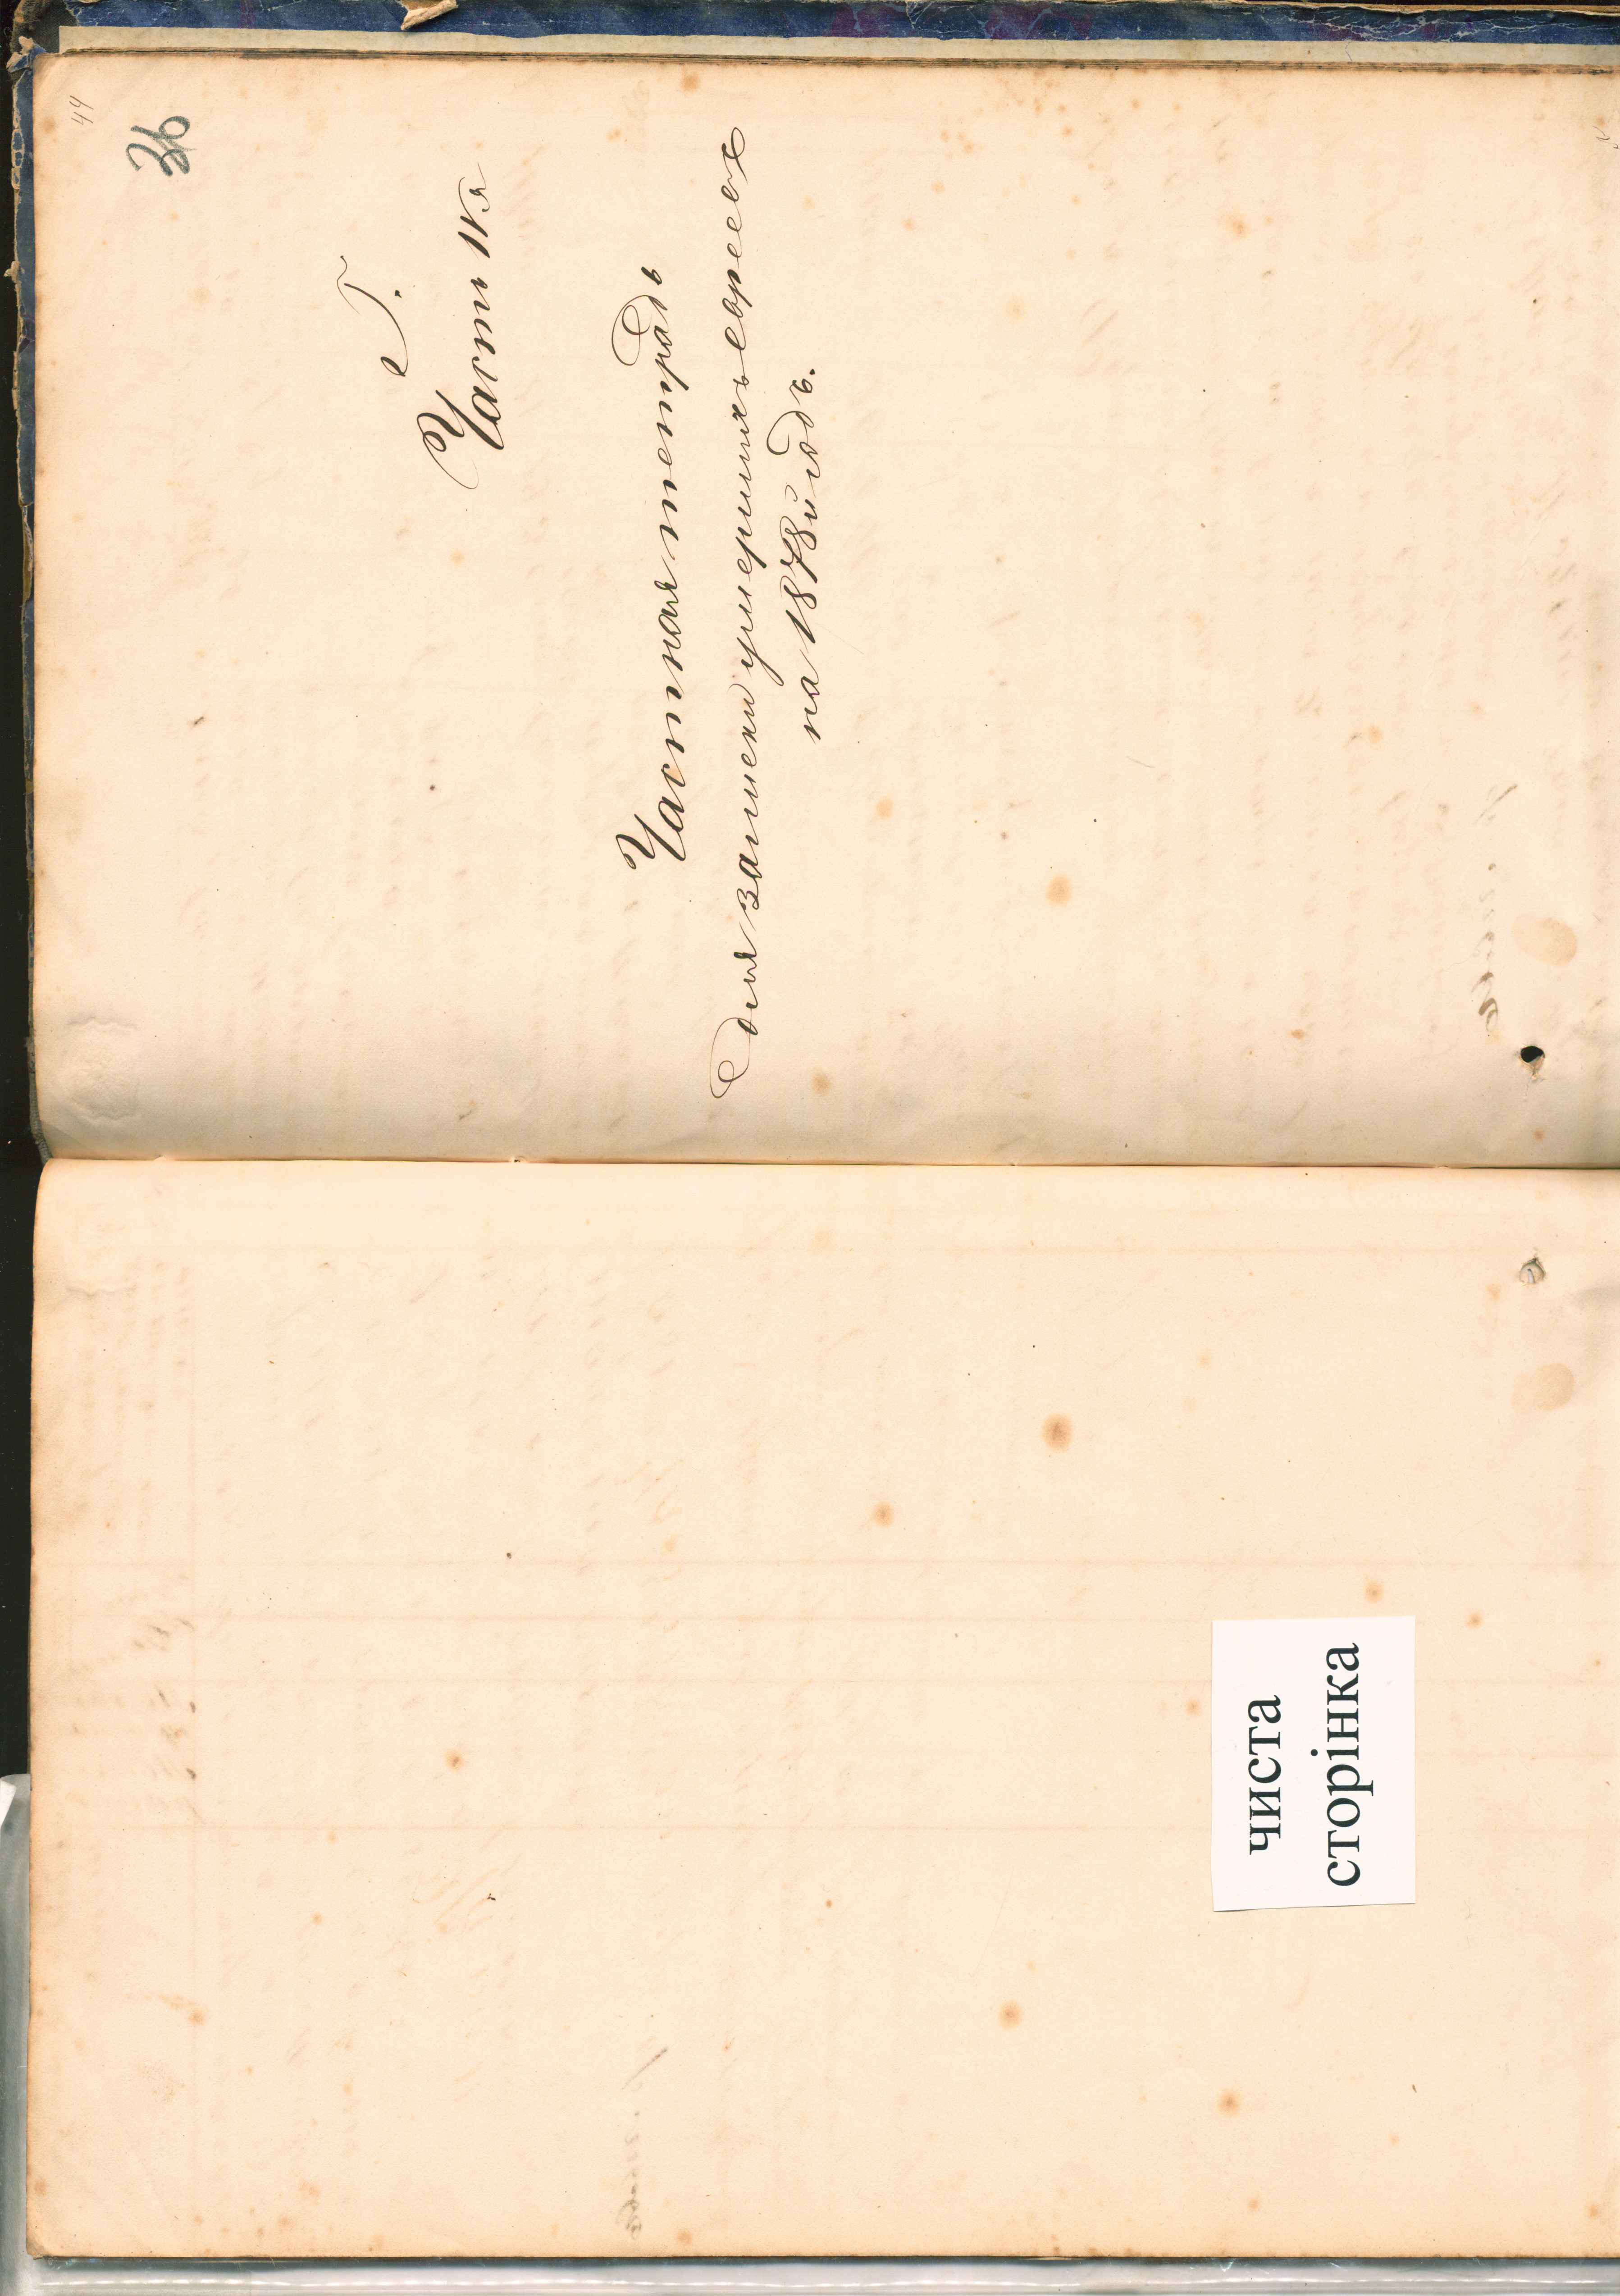 чиста
сторінка
44
36
Г.
Часть IVя
Частная тетрадь
для записки умершихъ евреевъ
на 1878й годъ.